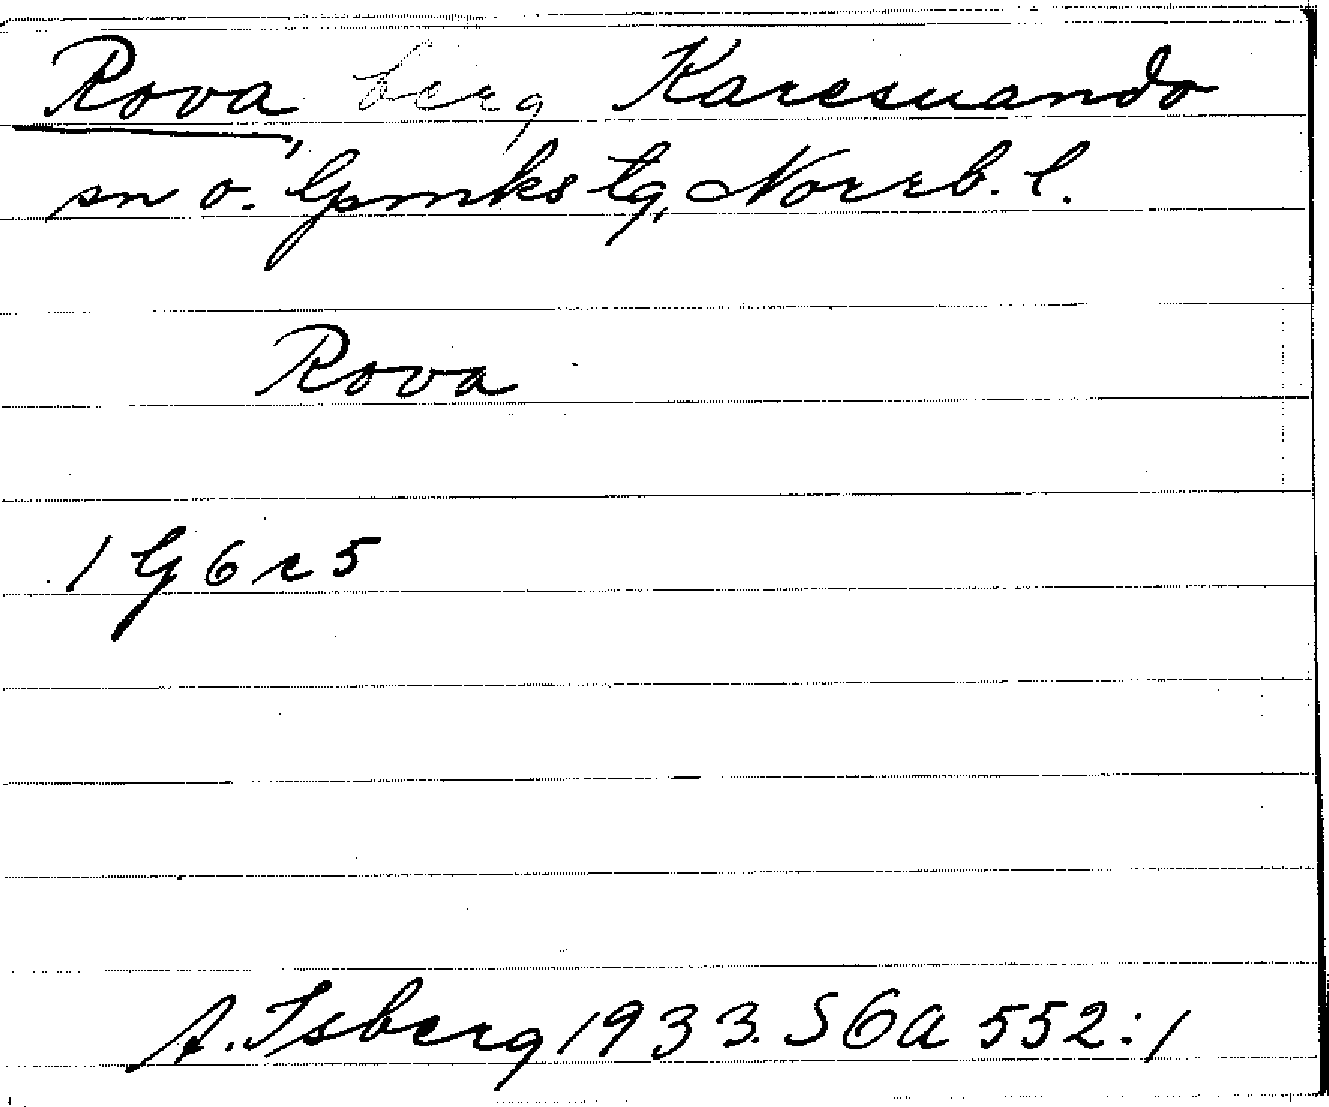 Rova, berg Karesuando
sn o. lpmks tg, Norrb. l.
Rova
1 G 6 c 5
A. Isberg 1933. SOA 552:1